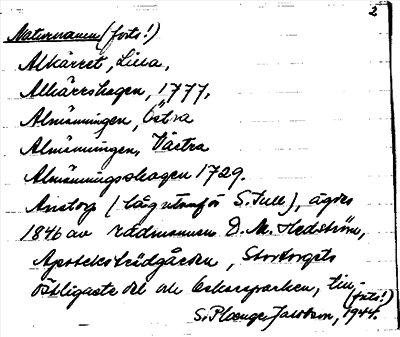 2
Naturnamn (forts!)
Alkärret, Lilla,
Alkärrshagen, 1777,
Almänningen, Östra
Almänningen, Västra
Almänningsskogen 1729.
Anstorp (låg utanför S. Tull), ägdes
1846 av rådmannen D. M. Hedström,
Apoteksträdgården, Stortorgets
östligaste del all
(forts!)
1944.